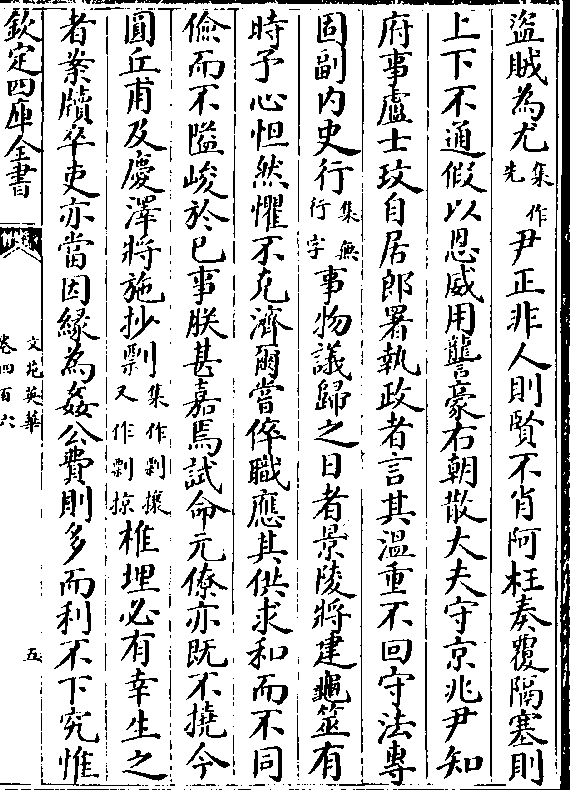 盜賊為尤集作先尹正非人則賢不肖阿枉奏覆隔塞則
上下不通假以恩威用讋豪右朝散大夫守京兆尹知
府事盧士玫自居郎署執政者言其溫重不回守法專
固副内史行集無行字事物議歸之日者景陵將建龜筮有
時予心怛然懼不克濟爾當倅職應其供求和而不同
儉而不隘峻於已事朕甚嘉焉試命元僚亦既不撓今
圓丘甫及慶澤將施抄剽集作剽攘又作剽掠椎埋必有幸生之
者案牘卒吏亦當因緣為姦公費則多而利不下究惟
欽定四庫全書
文苑英華
卷四百六
五